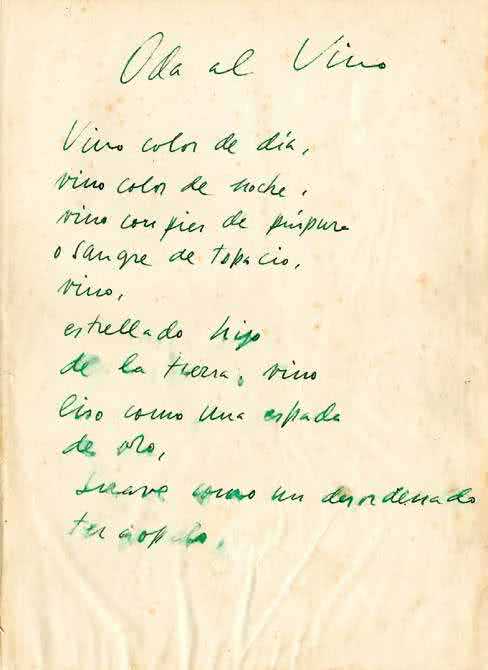 Oda al Vino
Vino color de día,
vino color de noche,
vino con pies de púrpura
o sangre de topacio,
vino,
estrellado hijo
de la tierra, vino
liso como una espada
de oro,
suave como un desordenado
terciopelo,